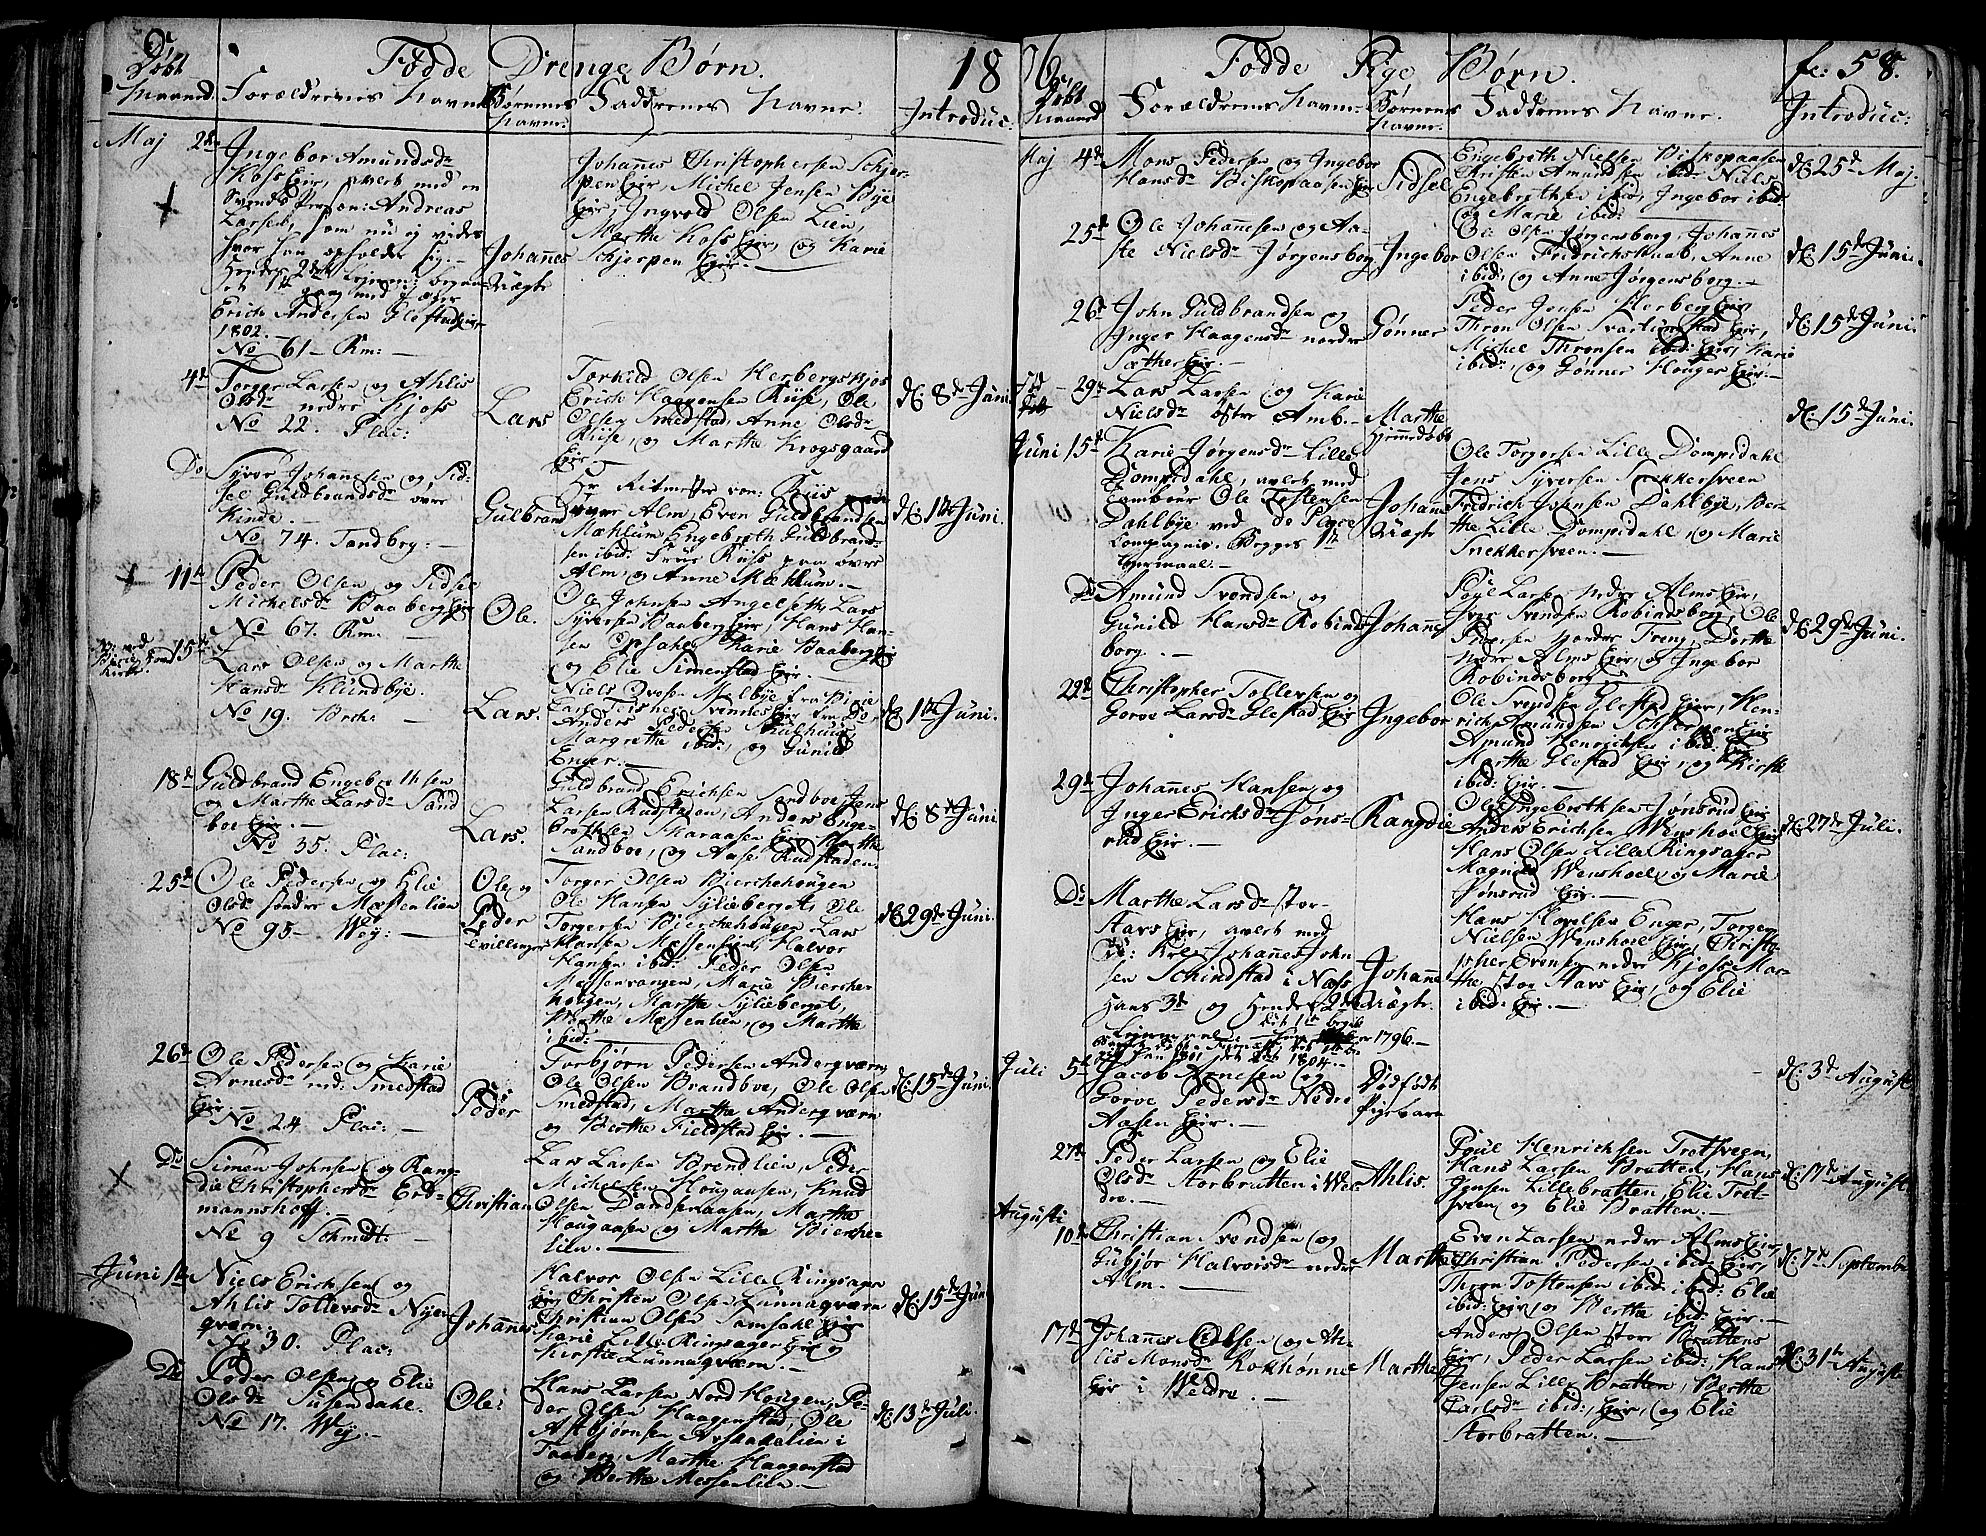 Fødde Drenge Børn. 18
Døbt
Maaned. Forældrenes Navne Børnenes Navne: Faddrenes Navne. Introduc:
Maj 2de Ingebor Amundsdr
Johannes Christophersen Schjer-
pen Ejer, Michel Jensen Bye
Ejer, Ingvold Olsen Lien,
Martha Koss Ejer, og Karie
Schjerpen Ejer.
Koss Ejer, averb med en
Svends Person: Andreas
Larsen, som nu ej vides
hvor han opholder sig.
Johannes
Uægte
Erich Andersen Glestad Ejer
1802.
No 61 - Rm:
4de Torger Larsen og Ahlis
Olsdr nedre Kjoss
No 22. Plac:
Lars
Torkild Olsen Herbergskjos
Erich Haagensen Riise, Ole
Olsen Smedstad, Anne Olsdr
Riise, og Marthe Krogsgaard
Ejer.
d: 8de Juni
Do Syver Johannesen og Sid-
sel Guldbrandsdr øvre
Kinde.
No 74. Tandbrg:
Gulbrand
Hr Ritmester von: Riis
øvre Alm, Even Guldbrandsen
Mæhlum, Engebreth Guldbrand-
sen ibid: Frue Riiss paa øvre
Alm, og Anne Mæhlum.
d: 1te Juni.
11te Peder Olsen og Sidsel
Michelsdr Baaberg Ejer
No 67. Rm:
Ole.
Ole Johnsen Angelseth, Lars
Syversen Baaberg Ejer, Hans Han-
sen Opsahl, Karie Baaberg Ejer
og Elie Simenstad Ejer.
15de
Lars Olsen og Marthe
Hansdr Klundbye.
No 19. Brch:
Lars.
Niels Ovesen Melbye fra Birie
Margrethe ibid:, og Gunild
Enger.
d: 1te Juni.
18de Guldbrand Engebrethsen
og Marthe Larsdr Sand
boe Ejer.
No 35. Plac:
Lars.
Guldbrand Erichsen Sandboe, Jens
Larsen Rudstaden, Anders Enge-
brethsen Skaraasen Ejer, Marthe
Sandboe, og Aase Rudstaden.
d: 8de Juni
25de Ole Pedersen og Elie
Olsdr søndre Mæssenlien
No 95 - Weg:
Ole og
Peder
tvillinger
Torger Olsen Bierchehougen
Ole Hansen Syljeberget, Ole
Torgersen Bierchehougen, Lars
Hansen Messenlien, Halvor
Hansen ibid: Peder Olsen
Messenvangen, Marie Bierche-
hougen, Marthe Syljeberget,
Marthe Messenlien, og Marthe
ibid:
d: 29de Juni.
26de Ole Pedersen og Karie
Arnesdr ned: Smedstad
Ejer.
No 24. Plac:
Peder
Torbjørn Pedersen Andergværn
Ole Olsen Brandboe, Ole Olsen
Smedstad, Marthe Andergværn
og Berthe Fieldstad Ejer.
d: 15de Juni.
Do Simen Johnsen og Ran-
die Christophersdr Erd-
mannshoff.
No 9 Schmdt:
Christian
Lars Larsen Brendlien, Peder
Michelsen Hougaasen, Knud
Olsen Danderaasen, Marthe
Hougaasen og Marthe Bierche-
lien.
Juni 1te Niels Erichsen og
Ahlis Tollevsdr Nyen-
qværn.
No 30. Plac:
Johannes
Halvor Olsen Lille Ringsager
Ejer, Christen Olsen Lunnaqværn
Christian Olsen Samsahl Ejer
Karie Lille Ringsager Ejer, og
Kirstie Lunnaqværn.
d: 15de Juni
Do Peder Olsen og Elie
Olsdr Susendahl.
No 17. Weg.
Ole:
Hans Larsen Nord Hougen, Pe-
der Olsen Haagenstad, Ole
Asbjørnsen Avskakelien i
Faaberg, Marthe Haagenstad
og Berthe Messenlien.
d: 13de Juli.
06. Fødde Pige Børn. fc: 58.
Døbt
Maaned Forældrenes Navne. Børnenes Navne. Faddrenes Navne. Introduc:
Maj 4de Mons Pedersen og Ingebor
Hansdr Biskopaasen Ejer
Sidsel
Engebreth Nielsen Biskopaasen
Christen Amundsen ibid: Niels
Engebrethsen ibid, Ingebor ibid:
og Marie ibid:
d: 25de Maj.
25de Ole Johannesen og Aa-
ste Nielsdr Jørgensborg
Ingebor
Ole Olsen Jørgensborg, Johannes
Olsen Fridrichskaab, Anne
ibid: og Anne Jørgensborg.
d: 15de Juni.
26de John Guldbrandsen og
Inger Haagensdr nordre
Sæther Ejer.
Gønner
Peder Jensen Herberg Ejer
Thron Olsen Svartungstad Ejer,
Michel Thronsen ibid: Ejer, Karie
ibid:, og Gønner Houger Ejer.
d: 15de Juni.
29de Lars Larsen og Karie
Nielsdr Øster Amb.
Marthe
hjemdøbt
d: 15de Juni.
Juni 15de Karie Jørgensdr Lille
Dompidahl, averb med
Tambour Ole Tostensen
Dahlbye ved de
Compagnie. Begges 1te
Lejermaal.
Johane
Uægte
Ole Torgersen Lille Dompidahl
Jens Syversen Snekkersveen
Fredrich Johnsen Dahlbye, Ber-
the Lille Dompidahl, og Marie
Snekkersveen.
Do Amund Svendsen og
Gunild Hansdr Robinds
borg.
Johane
Poul Larsen nedre Alms Ejer,
Iver Svendsen Robindsborg, Ole
Pedersen nordre Treng, Dorthe
nedre Alms Ejer, og Ingebor
Robindsborg
d: 29de Juni.
22de Christopher Tollevsen og
Gorve Larsdr Glestad Ejer
Ingebor
Ole Svendsen Glestad Ejer, Hen-
rich Amundsen Schjerpen Ejer
Amund Henrichsen ibid: Ejer
Marthe Glestad Ejer, og Kirstie
ibid: Ejer.
29de Johannes Hansen og
Inger Erichsdr Jøns-
rud Ejer.
Rangdie
Ole Engebrethsen Jønsrud Ejer
Anders Erichsen Wenshoel Ejer
Hans Olsen Lille Ringsager
Magnild Wenshoel, og Marie
Jønsrud Ejer.
d: 27de Juli.
Do Marthe Larsdr stor-
Aavs Ejer, averb med
Johannes John-
sen Schindstad i Næss
Hans 3de og Hendes 2de
Johanne
Uægte.
Hans Hovelsen Enger, Torger
Nielsen Wenshoel Ejer, Christo-
pher Evensen nedre Kjoss, Mar-
the, stor Aavs Ejer, og Elie
ibid: Ejer.
Juli 5te Jacob Arnesen og
Gorve Pedersdr Nedre
Aasen Ejer.
Dødfødt
Pigebarn
d: 3de Augusti
27de Peder Larsen og Elie
Olsdr Storbratten i Wel-
dre.
Ahlis.
Poul Henrichsen Tretsveen,
Hans Larsen Bratten, Hans
Jensen Lillebratten, Elie Tret-
sveen og Elie Bratten.
d: 17de Augusti
Augusti
10de Christian Svendsen og
Gubjør Halvorsdr nedre
Alm.
Marthe
Even Larsen nedre Alms Ejer,
Christian Pedersen ibid: Ejer,
Thron Tostensen ibid: ibid: Elie
ibid: Ejer, og Berthe ibid: Ejer.
d: 7de Septembr
17de Johannes Nielsen og Ah-
lis Monsdr Kokhønne
Ejer i Veldre.
Marthe
Anders Olsen store Brattens
Ejer, Peder Larsen ibid: Hans
Jensen Lille Bratten, Berthe
Carlsdr ibid: Ejer, og Elie
Storbratten.
d: 31te Augusti